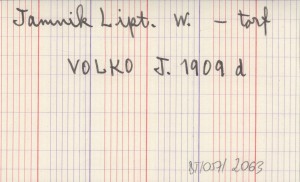 Jamnik Lipt. W. - torf
VOLKO J. 1909 d
2063